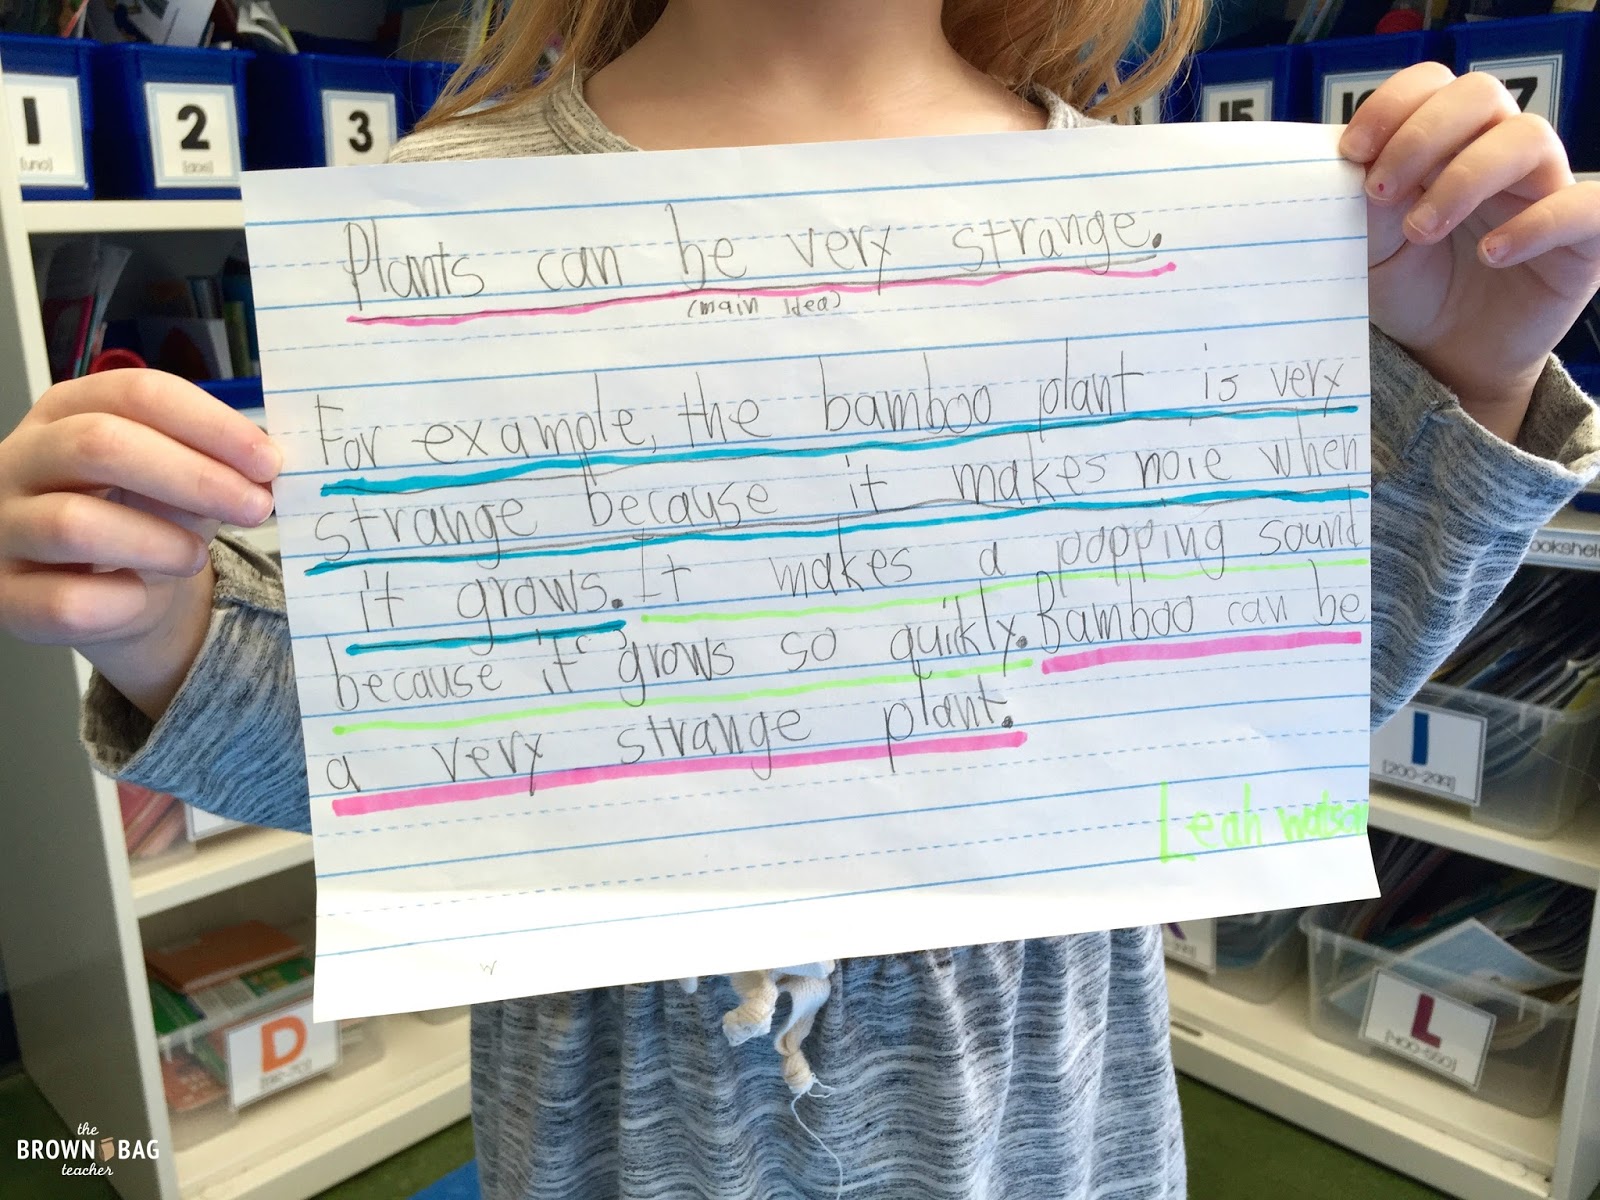 1
(uno)
2
(dos)
3
15
17
Plants can be very strange.
(main idea)
For example, the bamboo plant is very
strange because it makes noie when
it grows. It makes a popping sound
because it grows so quikly. Bamboo can be
a very strange plant.
Leah watson
I
(200-299)
D
L
(400-550)
the
BROWN BAG
teacher